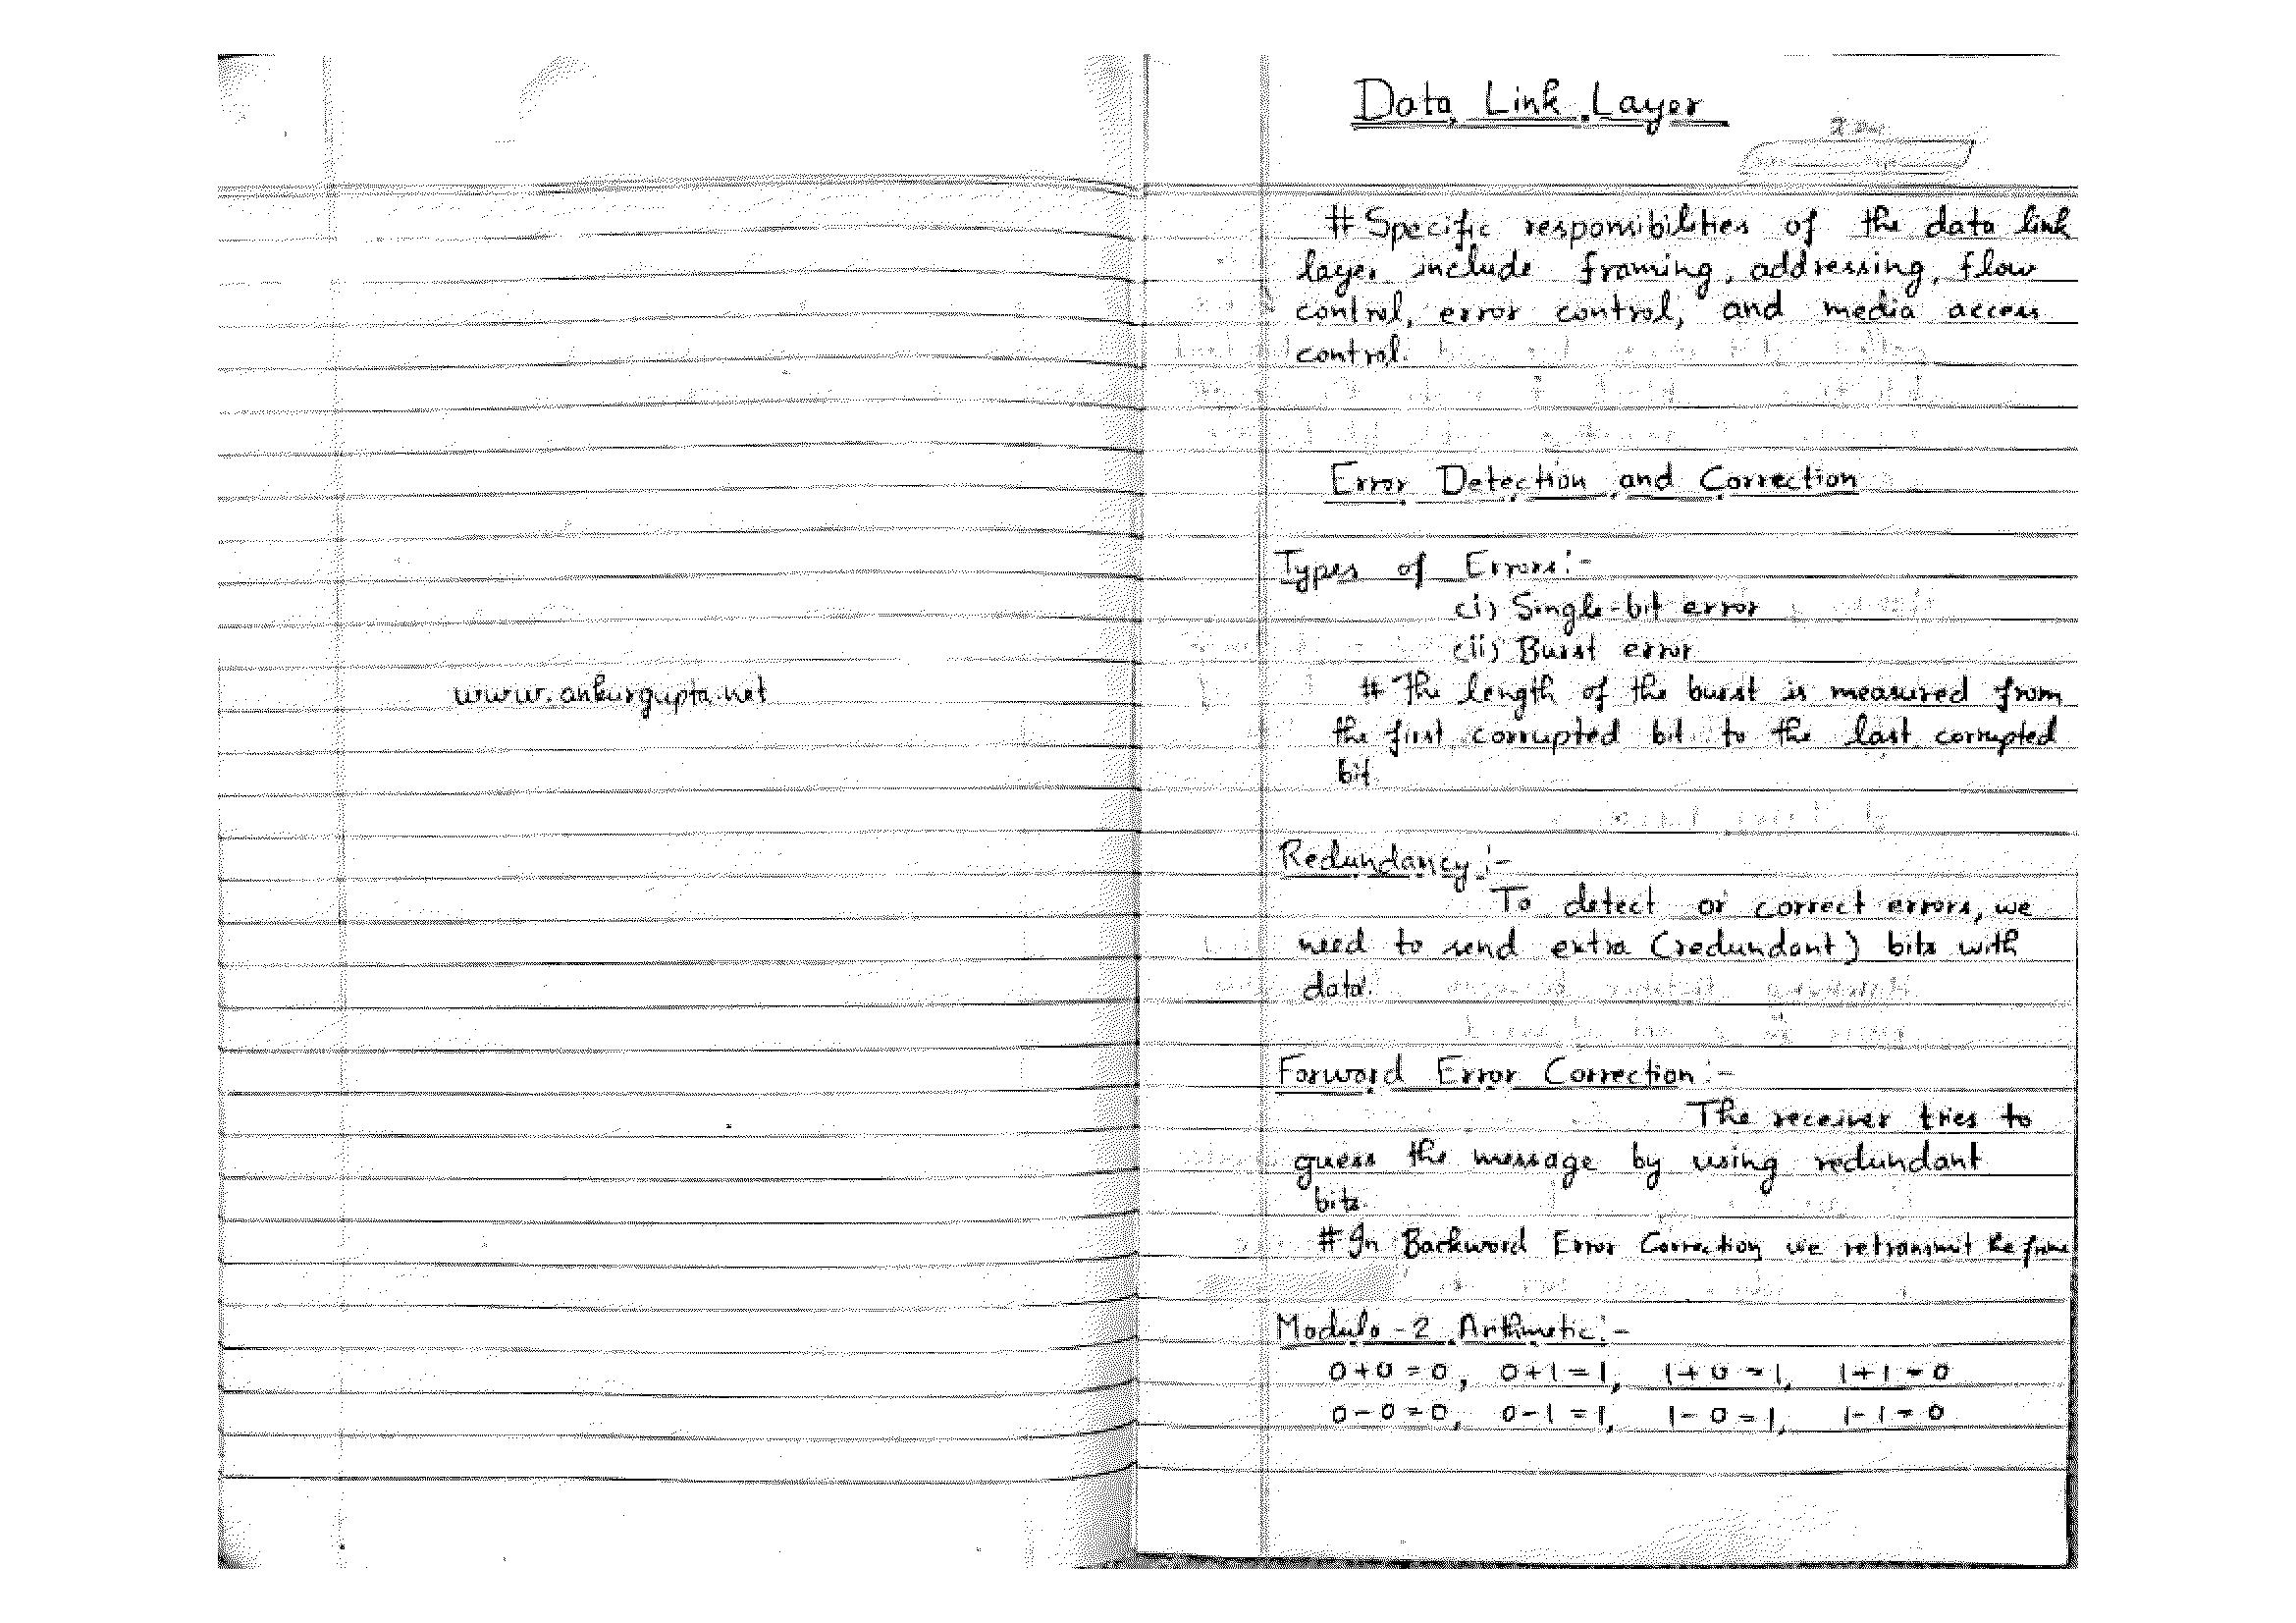 www.ankurgupta.net
Data Link Layer
# Specific responsibilities of the data link
layer include framing, addressing, flow
control, error control, and media access
control.
Error Detection and Correction
Types of Errors:-
(i) Single-bit error
(ii) Burst error
# The length of the burst is measured from
the first corrupted bit to the last corrupted
bit.
Redundancy:-
To detect or correct errors, we
need to send extra (redundant) bits with
data.
Forward Error Correction:-
The receiver tries to
guess the message by using redundant
bits.
# In Backword Error Correction we retransmit the frame
Modulo-2 Arithmetic:-
0+0=0, 0+1=1, 1+0=1, 1+1=0
0-0=0, 0-1=1, 1-0=1, 1-1=0